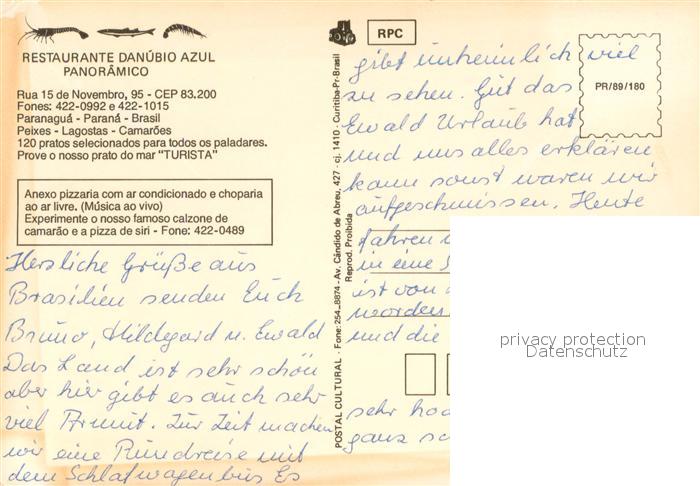 RESTAURANTE DANÚBIO AZUL
PANORÂMICO
Rua 15 de Novembro, 95 - CEP 83.200
Fones: 422-0992 e 422-1015
Paranaguá - Paraná - Brasil
Peixes - Lagostas - Camarões
120 pratos selecionados para todos os paladares.
Prove o nosso prato do mar "TURISTA"
Anexo pizzaria com ar condicionado e choparia
ao ar livre. (Música ao vivo)
Experimente o nosso famoso calzone de
camarão e a pizza de siri - Fone: 422-0489
Herzliche Grüße aus
Brasilien senden Euch
Bruno, Hildegard u. Ewald
Das Land ist sehr schön
aber hier gibt es auch sehr
viel Armut. Zur Zeit machen
wir eine Rundreise mit
dem Schlafwagenbus Es
POSTAL CULTURAL - Fone: 254-8874 - Av. Cândido de Abreu, 427 - cj. 1410 - Curitiba-Pr-Brasil
Reprod. Proibida
RPC
PR/89/180
gibt unheimlich viel
zu sehen. Gut das
Ewald Urlaub hat
und uns alles erklären
kann sonst waren wir
aufgeschmissen. Heute
fahren
in eine
ist von
worden
und die
sehr
ganz
privacy protection
Datenschutz